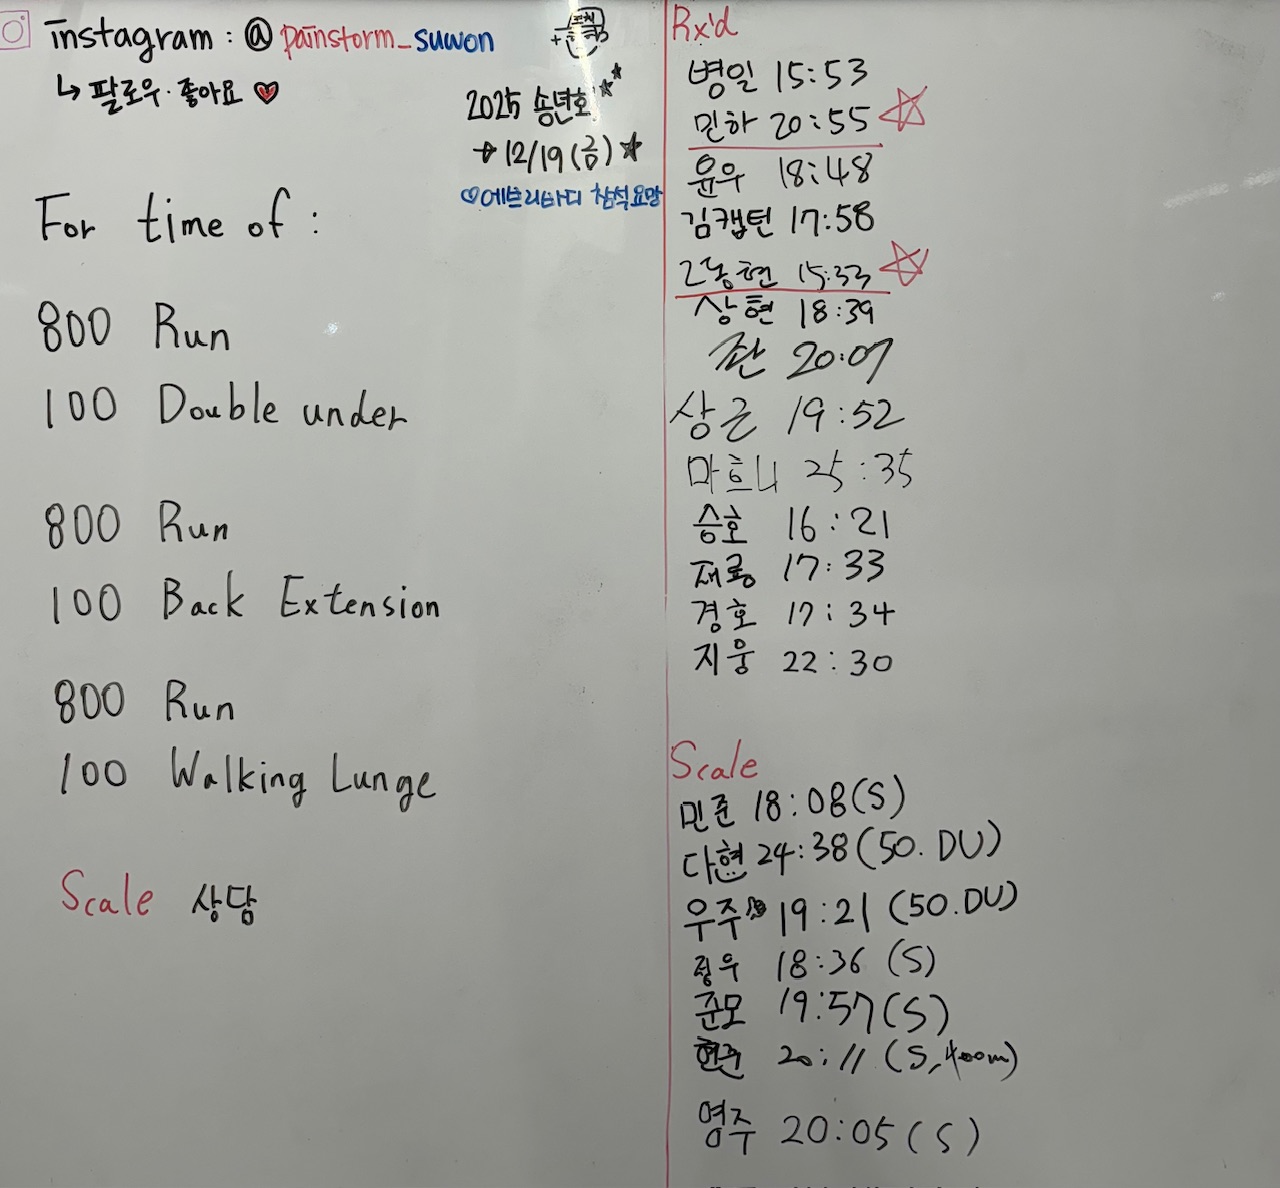 instagram : @painstorm_suwon
↳ 팔로우·좋아요 ♡
2025 송년회
→ 12/19 (금) ★
♡에브리바디 참석요망
For time of :
800 Run
100 Double under
800 Run
100 Back Extension
800 Run
100 Walking Lunge
Scale 상담
Rx'd
병일 15:53
민하 20:55 ☆
윤우 18:48
김캡틴 17:58
동현 15:33 ☆
상현 18:39
20:07
상근 19:52
마흐니 25:35
승호 16:21
재룡 17:33
경호 17:34
지웅 22:30
Scale
민준 18:08(S)
다현 24:38(50.DU)
우주 19:21 (50.DU)
정우 18:36 (S)
준모 19:57(S)
현준 20:11 (S, 400m)
영주 20:05(S)